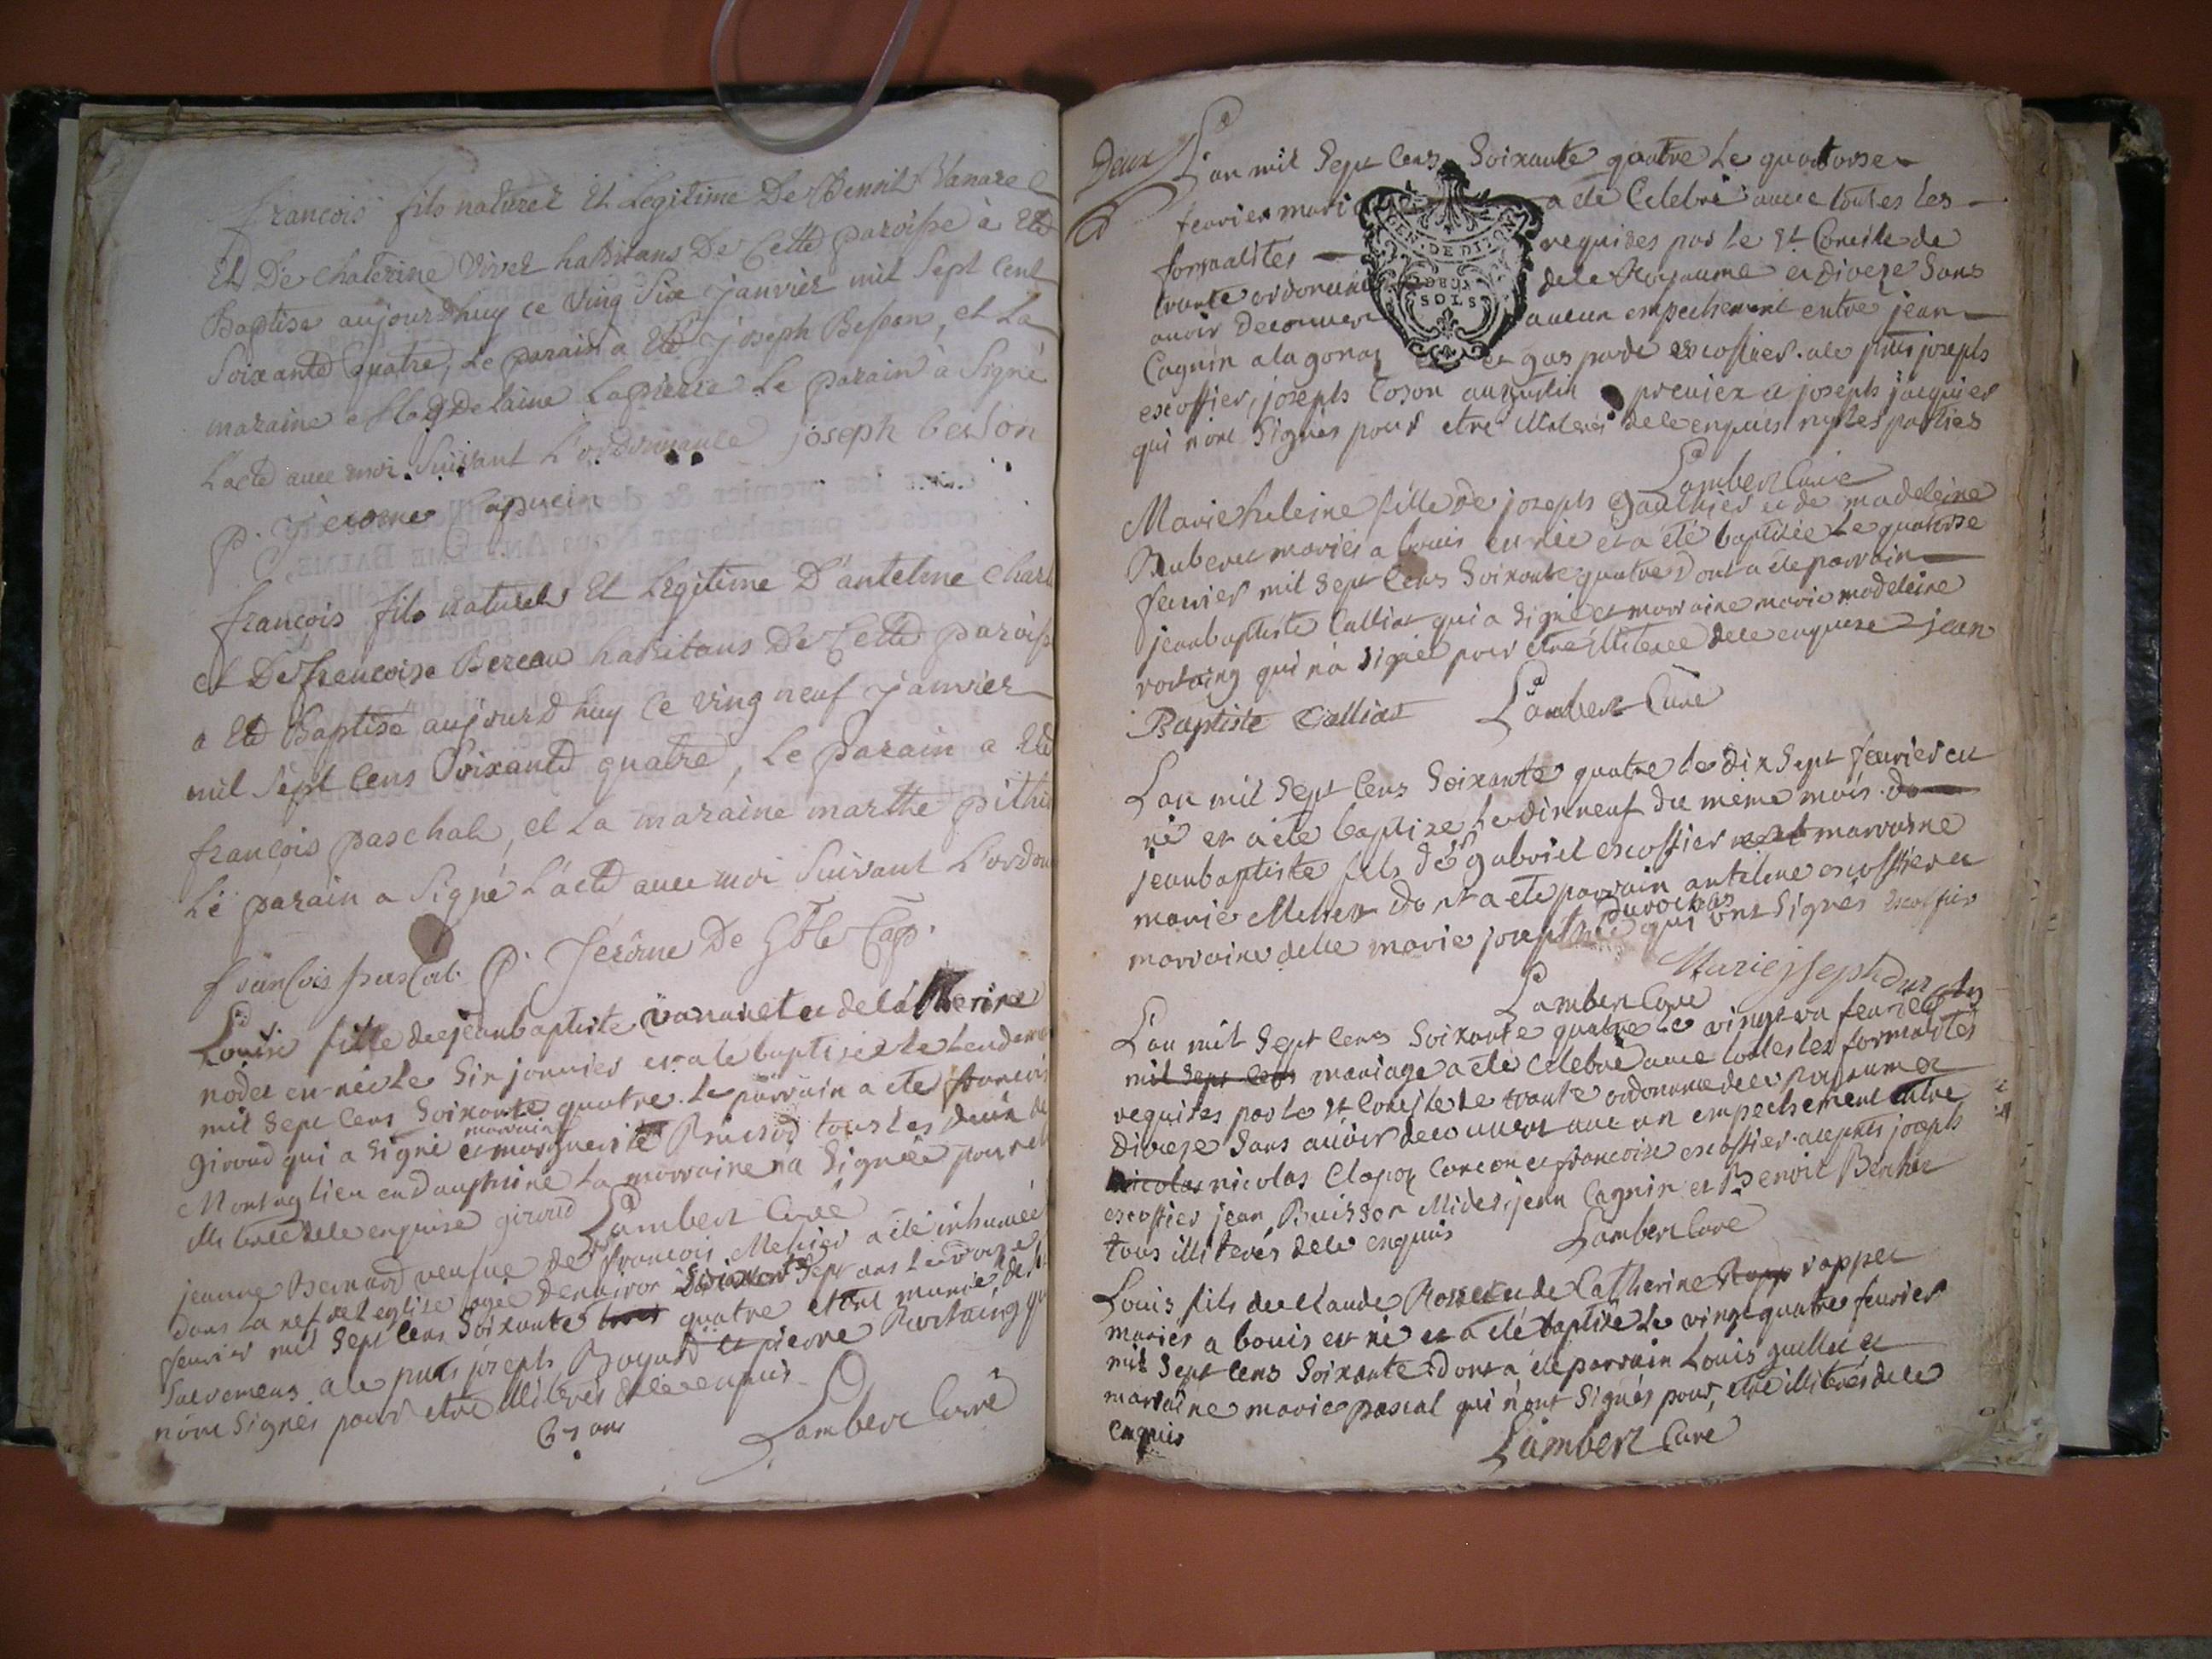 françois fils naturel Et Legitime De Benoit Vanarel
Et De Chaterine Vivet habitans De Cette paroisse à Eté
Baptise aujourdhuy ce Ving Six janvier mil Sept cent
Soixante quatre, Le parain à Eté joseph Besson, et La
maraine Magdelaine Lapierre Le parain à Signé
L'acte avec moi Suivant L'ordonnance joseph besson
P. Jerome Capucin
françois fils naturel Et Legitime D'antelme Charl
et De françoise Bereau habitans De Cette paroiss
a Eté Baptisé aujourdhuy Ce Ving neuf janvier
mil Sept Cens Soixante quatre, Le parain a Eté
françois paschal, et La maraine marthe pithi
Le parain a Signé L'acte avec moi Suivant L'ordon
françois pascal P. Jerôme De Cap.
Louise fille de jeanbaptiste vanaret et de Catherine
nodet en née le Six janvier et a été baptisée le Lendemain
mil Sept Cens Soixante quatre. Le parrain a ete françois
marraine
giroud qui a Signé et marguerite tous les deux de
Montaglieu en dauphiné La marraine na Signée pour et
illiterée de ce enquise giroud Lambert Curé
jeanne Bernard veufue de françois Mehier a été inhumée
dans La nef de l'eglise agée denviron Soixante Sept ans le onze
feurier mil Sept Cens Soixante trois quatre etant munie des
Sacremens a ce puts joseph Bogard et pierre Rortaing qu
n'ont Signés pour etre illiterés de ce enquis
67 ans Lambert Curé
Deux
L'an mil Sept Cens Soixante quatre Le quatorse
feurier mari a été Celebré avec toutes les
GEN. DE DIJON
DEUX
SOLS
formalites requises par le St Concile de
trante ordonnan de ce Royaume et Dioceze Sans
avoir Decouver aucun empechement entre jean
Cagnin a lagonas et gasparde escoffier. a ce puts joseph
escoffier, joseph Coson augustin premier et joseph jacquier
qui n'ont Signés pour etre illiterés de ce enquis ny les parties
Lambert Curé
Marie heleine fille de joseph Gauthier et de madeleine
Aubert mariés a bouis en née et a été baptisée Le quatorse
feurier mil Sept Cens Soixante quatre Dont a été parrain
jeanbaptiste Calliat qui a Signé et marraine marie madeleine
rortaing qui n'a Signé pour etre illiterée de ce enquise jean
Baptiste Calliat Lambert Curé
L'an mil Sept Cens Soixante quatre le dix Sept feurier en
né et a été baptise le dixneuf du meme mois
jeanbaptiste fils de sr gabriel escoffier et marraine
marie Meket Dont a ete parrain antelme escoffier et
durochas
marraine delle marie josepthe qui ont Signés Escoffier
Marie joseph durochas
Lambert Curé
L'an mil Sept Cens Soixante quatre Le vingt un feurier
mil Sept Cens mariage a été Celebré avec toutes les formalités
requises par le St Concile de trante ordonnance de ce Royaume et
Diocese Sans auoir decouuert aucun empechement entre
nicolas nicolas Clapot Concon et françoise escoffier. a ce puts joseph
escoffier jean Buisson Mider, jean Cagnin et Benoit Berthet
tous illiterés de ce enquis Lambert Curé
Louis fils de Claude Rosset et de Catherine Rapp rappet
mariés a bouis est né et a été baptisé Le vingt quatre feurier
mil Sept Cens Soixante Dont a été parrain Louis guillet et
marraine marie pascal qui n'ont Signés pour, etre illiterés de ce
enquis Lambert Curé